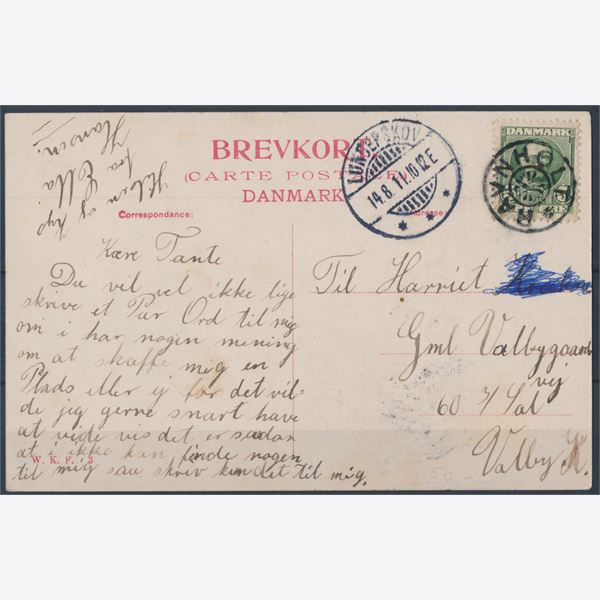 BREVKORT
(CARTE POSTALE)
DANMARK
Correspondance:
Adresse:
LUNDERSKOV
14.8.11.10-12E
DANMARK
RAVNHOLT
Kære Tante
Du vil vel ikke lige
skrive et Par Ord til mig
om i har nogen mening
om at skaffe mig en
Plads eller ej for det vil-
de jeg gerne snart have
at vide vis det er saadan
at i ikke kan finde nogen
til mig saa skriv kun det til mig.
Hilsen og kys
fra Ella
Hansen.
Til Harriet
Gml Valbygaard
vej
60 3/ Sal
Valby K.
W. K. F. 3